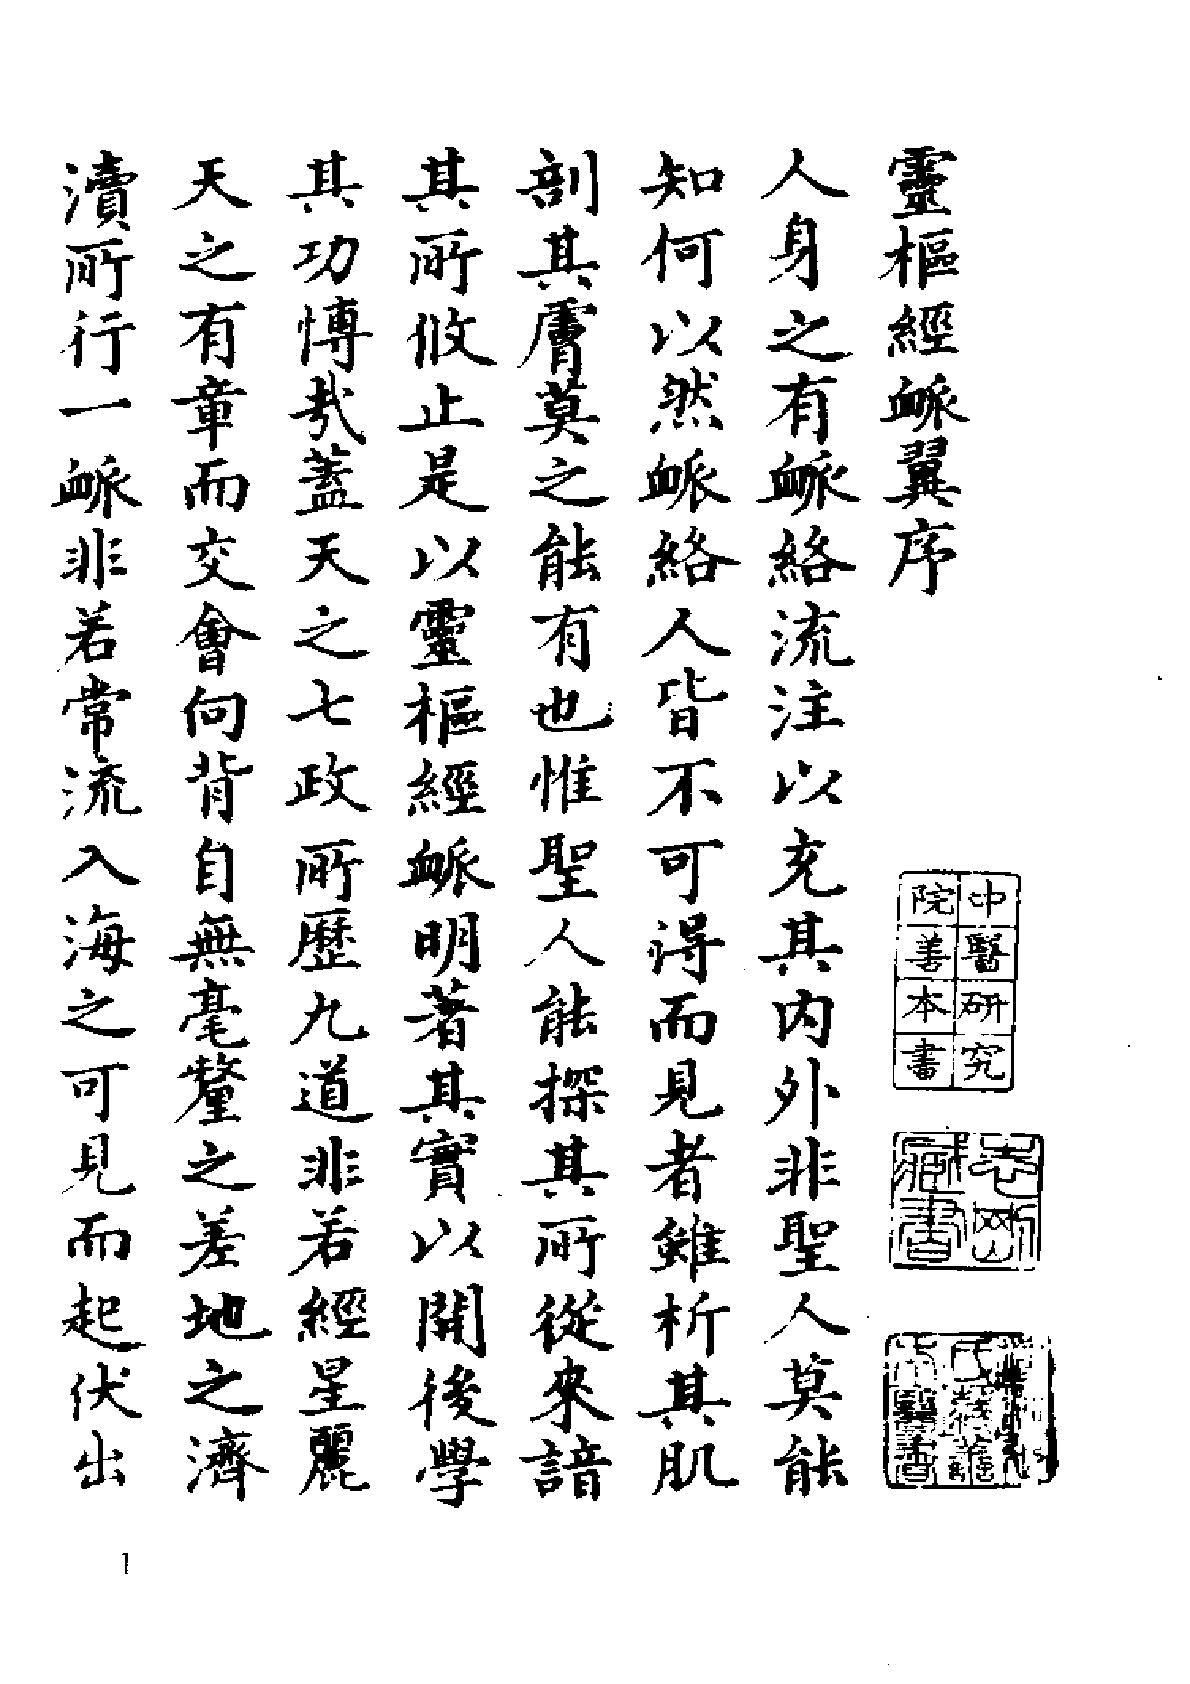 靈樞經衇翼序
人身之有衇絡流注以充其内外非聖人莫能
知何以然衇絡人皆不可得而見者雖析其肌
剖其膚莫之能有也惟聖人能探其所從來諳
其所攸止是以靈樞經衇明著其實以開後學
其功博哉蓋天之七政所歷九道非若經星麗
天之有章而交會向背自無毫釐之差地之濟
瀆所行一衇非若常流入海之可見而起伏出
中醫研究
院善本書
藏書
1